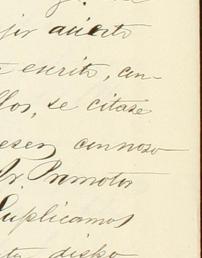 jir auierto
escrito, con-
llos, se citase
esen connoso
Sr. Promotor
Suplicamos
dispo